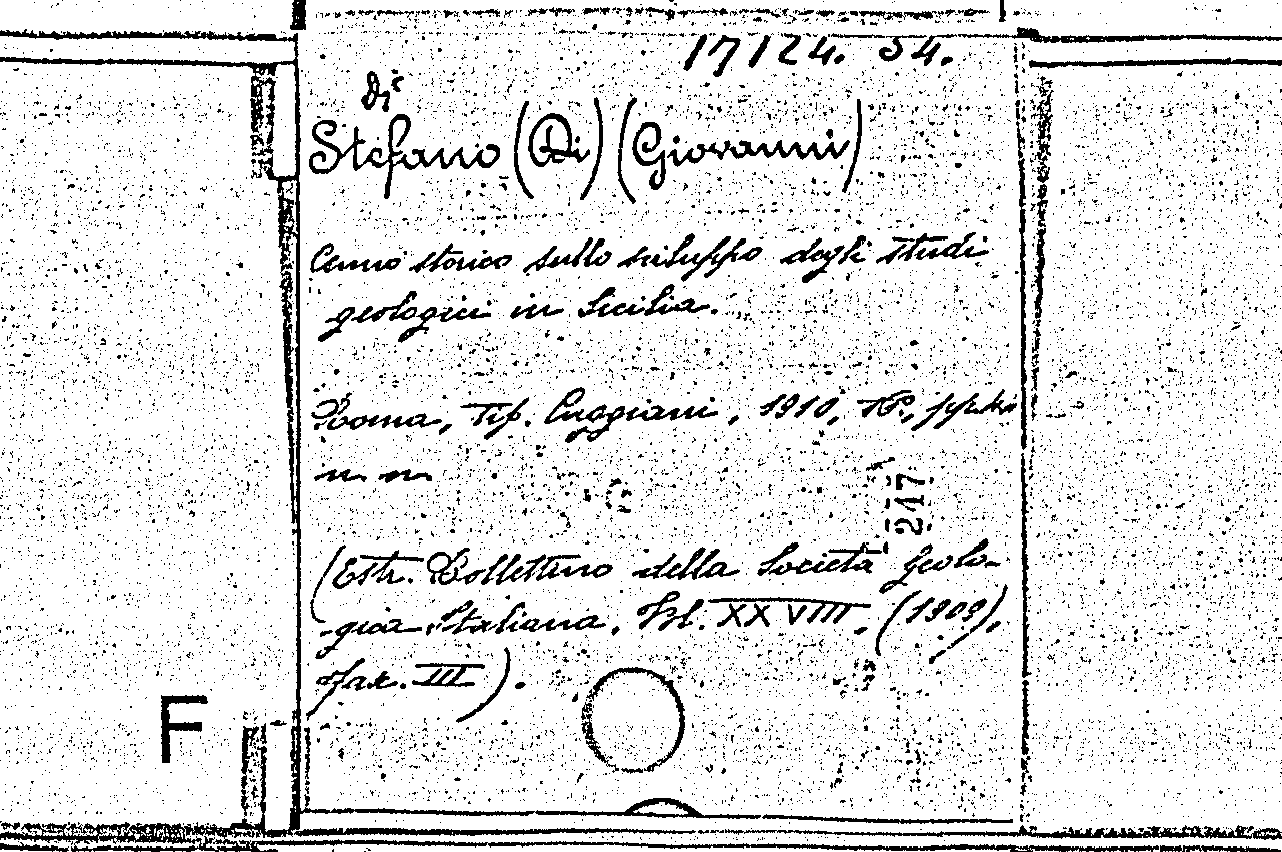 17124. 34.
di
Stefano (Di) (Giovanni)
Cenno storico sullo sviluppo degli studi
geologici in Sicilia.
Roma, Tip. Cuggiani, 1910, 8°,
n. n.
247
(Estr. Bollettino della Società Geolo-
gica Italiana, Vol. XXVIII, (1909),
fasc. III).
F